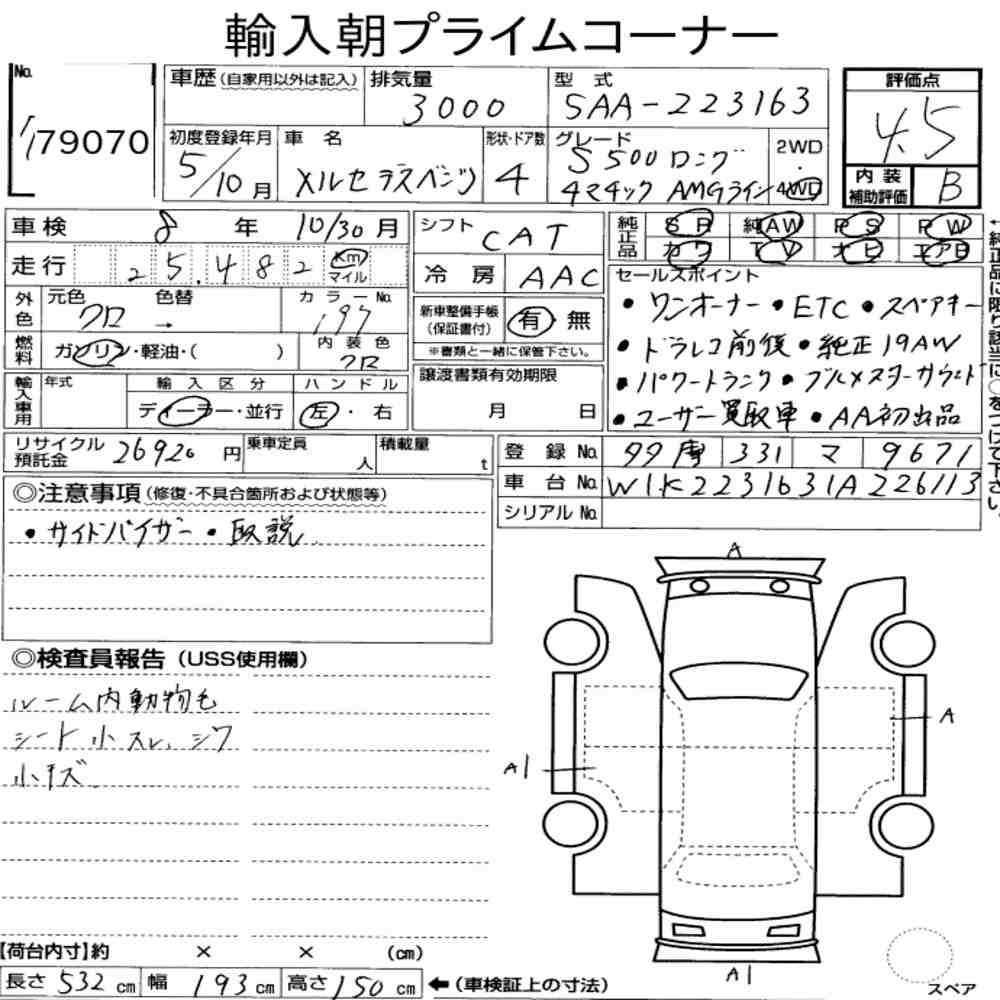 輸入朝プライムコーナー
No. 79070
車歴(自家用以外は記入) 排気量 3000 型式 SAA-223163 評価点 4.5
初度登録年月 5/10月 車名 メルセデスベンツ 形状・ドア数 4 グレード S500ロング 4マチック AMGライン 2WD・4WD 内装補助評価 B
車検 8年 10/30月 シフト CAT 純正品 SR 純AW PS PW
走行 25,482 Km マイル 冷房 AAC カワ TV ナビ エアB
外色 元色 クロ 色替 → カラーNo. 197 新車整備手帳(保証書付) 有 無
※書類と一緒に保管下さい。
燃料 ガソリン・軽油・( ) 内装色 クロ
輸入車用 年式 輸入区分 ディーラー・並行 ハンドル 左・右 譲渡書類有効期限 月 日
セールスポイント
・ワンオーナー ・ETC ・スペアキー
・ドラレコ前後 ・純正19AW
・パワートランク ・ブルメスターサウンド
・ユーザー買取車 ・AA初出品
リサイクル預託金 26920円 乗車定員 人 積載量 t
登録No. 331 マ 9671
車台No. W1K2231631A226113
シリアルNo.
◎注意事項(修復・不具合箇所および状態等)
・サイドバイザー ・取説
◎検査員報告(USS使用欄)
ルーム内動物毛
シート小スレ、シワ
小キズ
A
A
A1
A1
【荷台内寸】約 × × (cm)
長さ 532 cm 幅 193 cm 高さ 150 cm ←(車検証上の寸法)
スペア